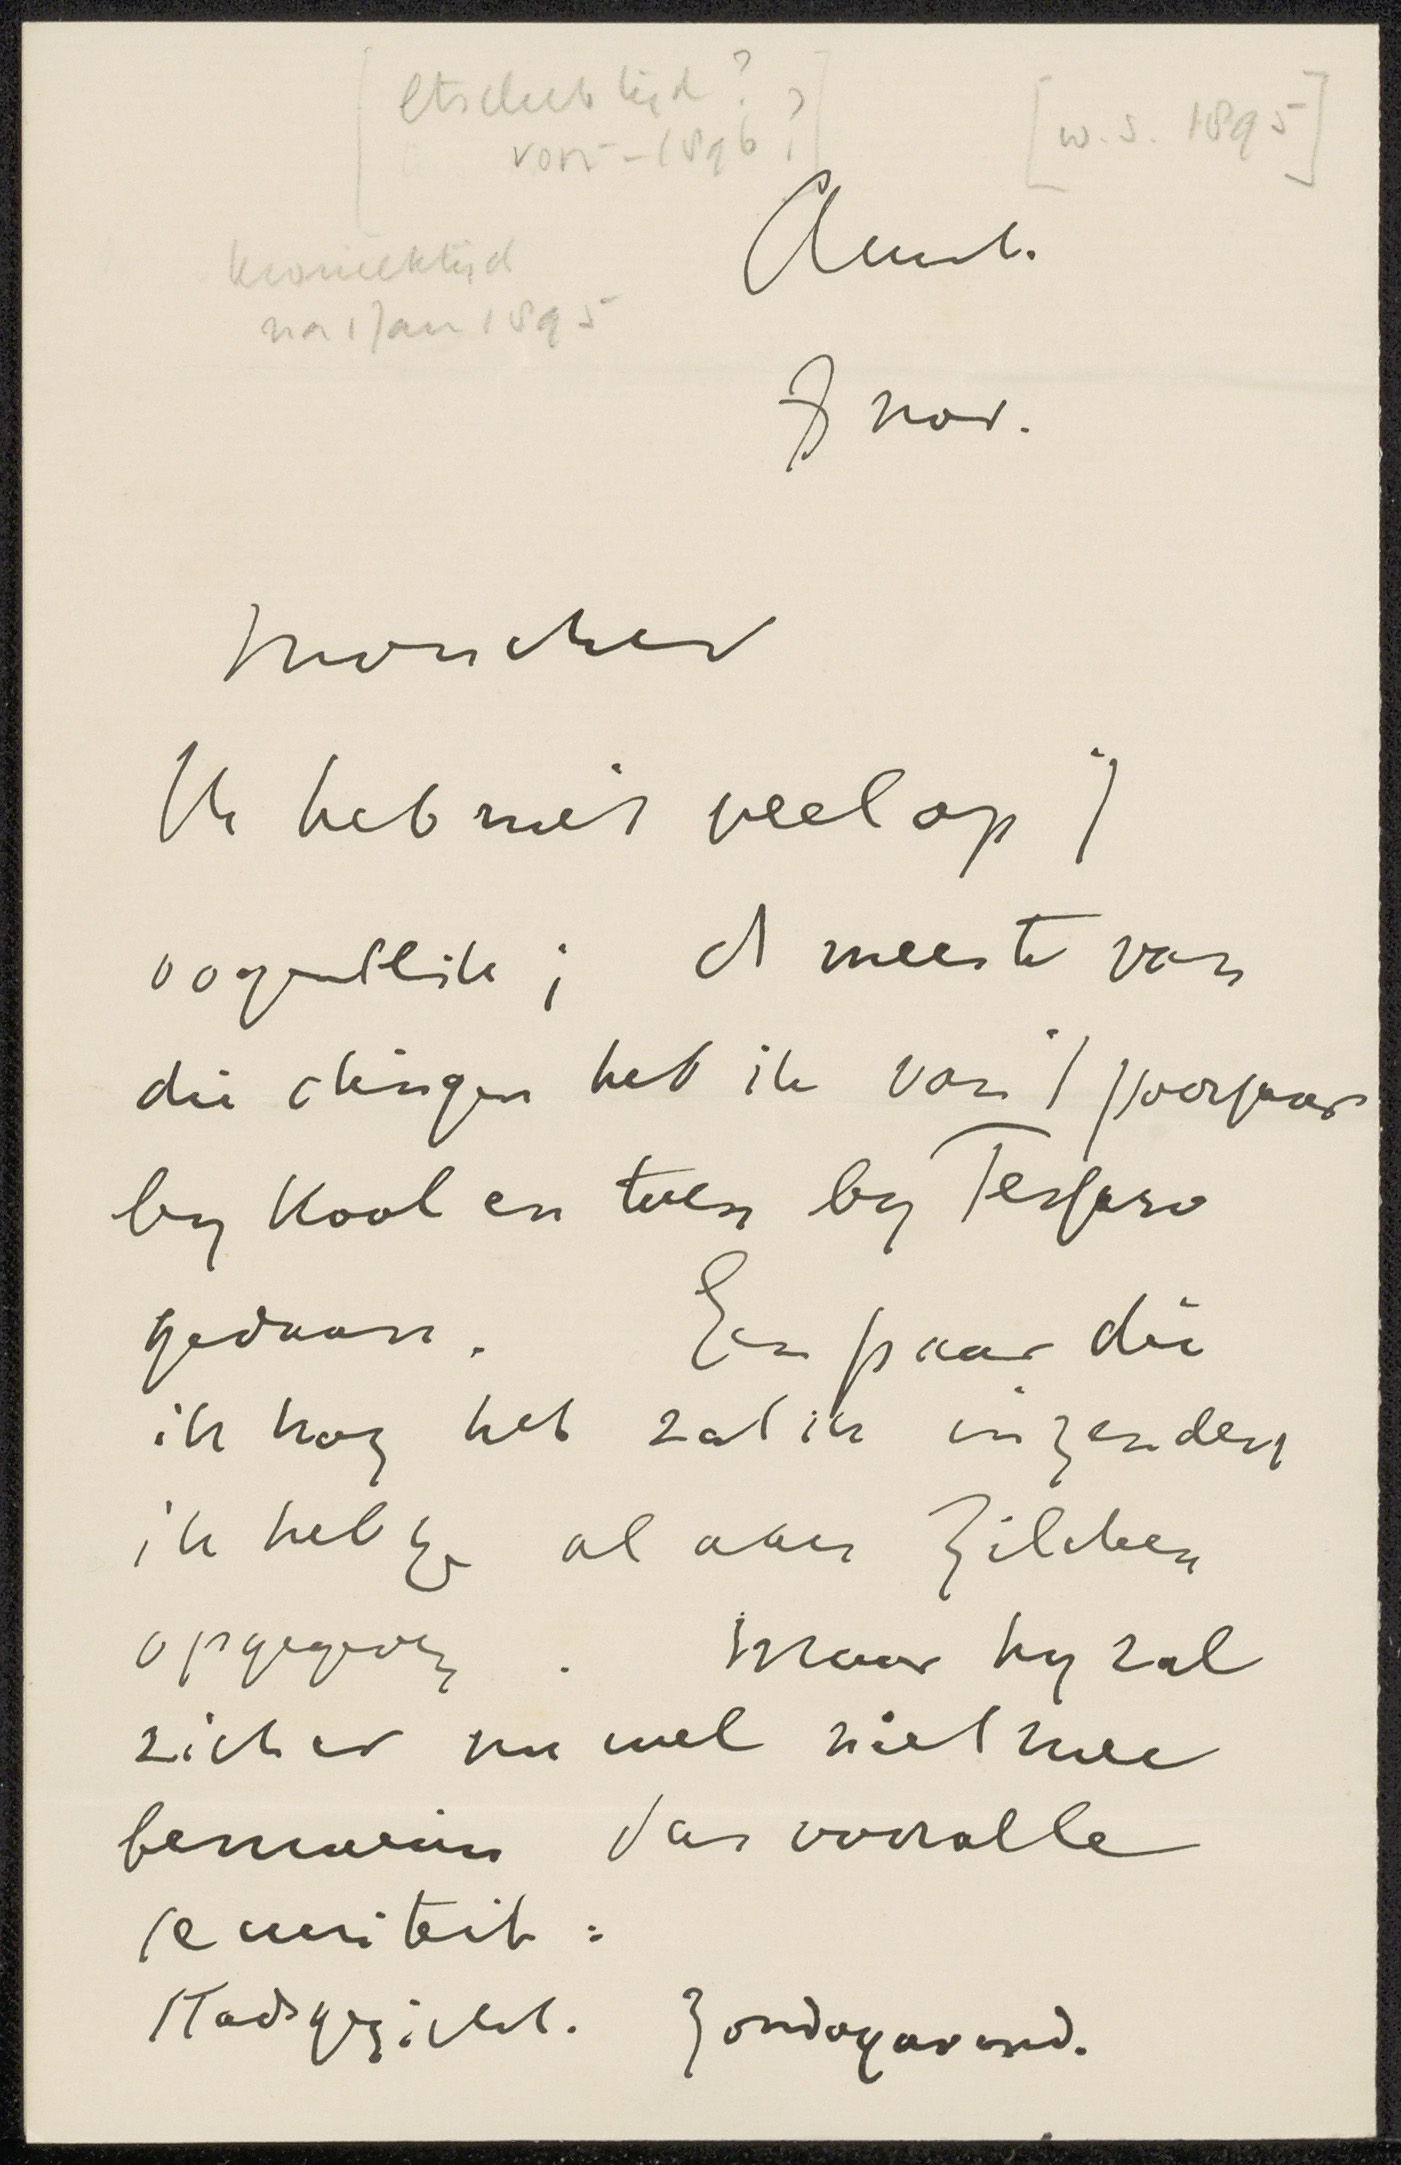 [etsclub tijd?
voor - 1896?]
[w.s. 1895]
Amst.
kroniektijd
na 1 Jan 1895
7 nov.
Moncher
Ik heb niet veel op 't
oogenblik; de meeste van
die dingen heb ik van 't voorjaar
by Kool en toen by Tersteeg
gedaan. Een paar die
ik nog heb zal ik inzenden
ik heb ze al aan Zilcken
opgegeven. Maar hy zal
zich er nu wel niet mee
bemoeien dus voor alle
securiteit:
Stadsgezicht. Zondagavond.